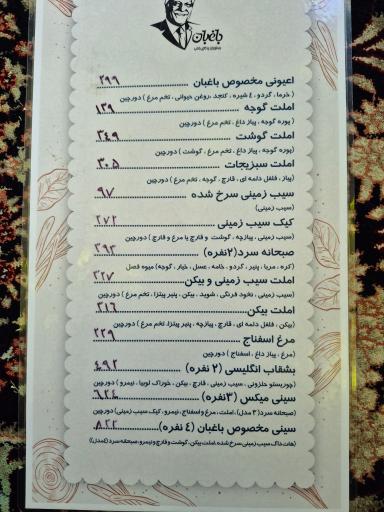 باغبان
اعیونی مخصوص باغبان ........ ۲۹۹
( خرما ، گردو ، ٤ شیره ، کنجد ،روغن حیوانی ، تخم مرغ ) دورچین
املت گوجه ........ ۱۳۹
(پوره گوجه ، پیاز داغ ، تخم مرغ ) دورچین
املت گوشت ........ ۳۴۹
(پوره گوجه ، پیاز داغ ، تخم مرغ ، گوشت ) دورچین
املت سبزیجات ........ ۳۰۵
(پیاز ، فلفل دلمه ای ، قارچ ، گوجه ، تخم مرغ ) دورچین
سیب زمینی سرخ شده ........ ۹۷
(سیب زمینی)
کیک سیب زمینی ........ ۲۷۲
(سیب زمینی ، پیازچه ، گوشت و قارچ یا مرغ و قارچ ) دورچین
صبحانه سرد(۲نفره) ........ ۳۹۳
(کره ، مربا ، پنیر ، گردو ، خامه ، عسل ، خیار ، گوجه) میوه فصل
املت سیب زمینی و بیکن ........ ۳۲۷
(سیب زمینی ، نخود فرنگی ، شوید ، بیکن ، پنیر پیتزا، تخم مرغ ) دورچین
املت بیکن ........ ۳۱۶
(بیکن ، فلفل دلمه ای ، قارچ ، پیازچه ، پنیر پیتزا، تخم مرغ ) دورچین
مرغ اسفناج ........ ۲۲۹
(مرغ ، پیاز داغ ، اسفناج ) دورچین
بشقاب انگلیسی (۲ نفره) ........ ۴۹۲
(چوریستو حلزونی ، سیب زمینی ، قارچ ، بیکن ، خوراک لوبیا ، نیمرو ) دورچین
سینی میکس (۳نفره) ........ ۶۲۴
(صبحانه سرد(۳ مدل) ، املت ، مرغ و اسفناج ، نیمرو، کیک سیب زمینی) دورچین
سینی مخصوص باغبان (٤ نفره) ........ ۸۲۲
(هات داگ،سیب زمینی سرخ شده ،املت بیکن،گوشت و قارچ و نیمرو،صبحانه سرد(٤مدل))